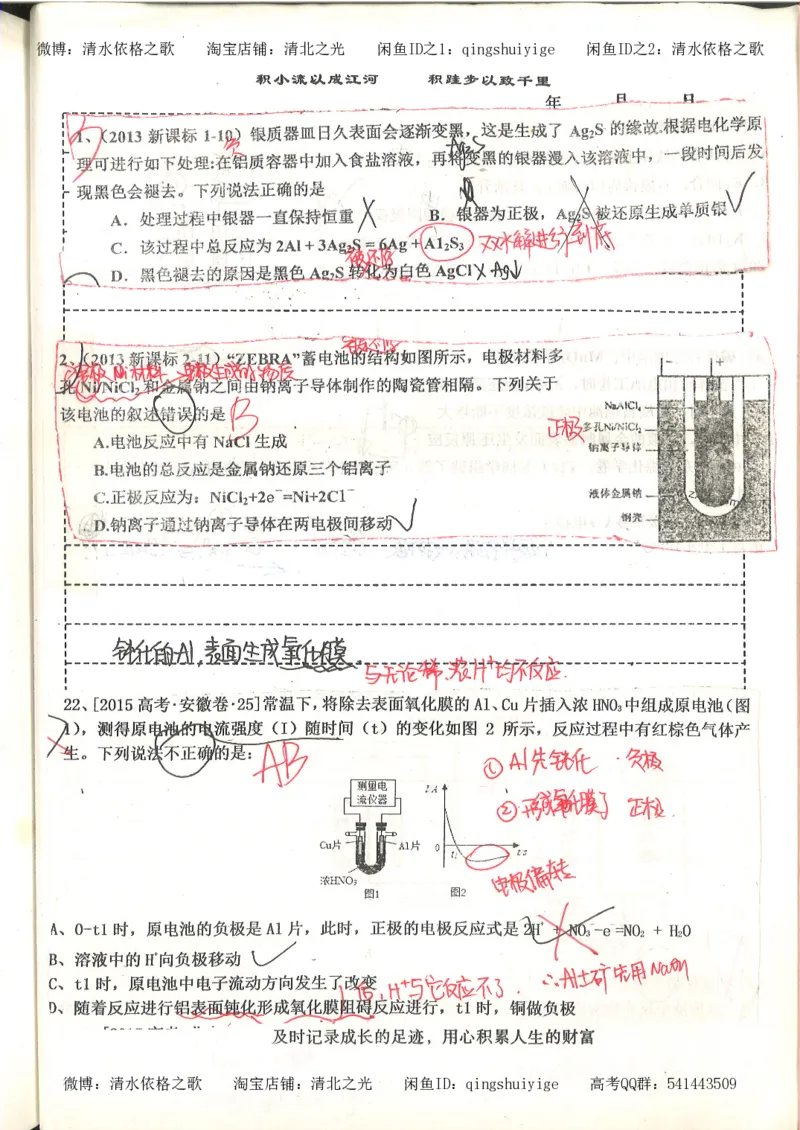 微博：清水依格之歌 淘宝店铺：清北之光 闲鱼ID之1：qingshuiyige 闲鱼ID之2：清水依格之歌
积小流以成江河 积跬步以致千里
年 月 日
B
1、(2013 新课标 1-10) 银质器皿日久表面会逐渐变黑，这是生成了 Ag₂S 的缘故.根据电化学原
理可进行如下处理:在铝质容器中加入食盐溶液，再将变黑的银器浸入该溶液中，一段时间后发
现黑色会褪去。下列说法正确的是
A．处理过程中银器一直保持恒重 B．银器为正极，Ag₂S 被还原生成单质银
C．该过程中总反应为 2Al + 3Ag₂S = 6Ag + Al₂S₃ 双水解进行到底
被还原
D．黑色褪去的原因是黑色 Ag₂S 转化为白色 AgCl Ag↓
2、(2013 新课标 2-11) “ZEBRA”蓄电池的结构如图所示，电极材料多
孔 Ni/NiCl₂ 和金属钠之间由钠离子导体制作的陶瓷管相隔。下列关于
该电池的叙述错误的是 B
A.电池反应中有 NaCl 生成
B.电池的总反应是金属钠还原三个铝离子
C.正极反应为：NiCl₂+2e⁻=Ni+2Cl⁻
D.钠离子通过钠离子导体在两电极间移动
NaAlCl₄
正极 多孔Ni/NiCl₂
钠离子导体
液体金属钠
钢壳
钝化的Al，表面生成氧化膜
与无论稀、浓H⁺均不反应.
22、[2015 高考·安徽卷·25]常温下,将除去表面氧化膜的 Al、Cu 片插入浓 HNO₃ 中组成原电池(图
1)，测得原电池的电流强度（I）随时间（t）的变化如图 2 所示，反应过程中有红棕色气体产
生。下列说法不正确的是： AB
① Al先钝化 · 负极
② 形成氧化膜了 正极.
测量电
流仪器
Cu片 Al片
浓HNO₃
图1
I/A
0 t₁ t/s
图2
电极偏转
A、0-t1 时，原电池的负极是 Al 片，此时，正极的电极反应式是 2H⁺ + NO₃⁻-e⁻=NO₂ + H₂O
B、溶液中的 H⁺向负极移动
C、t1 时，原电池中电子流动方向发生了改变
后, H⁺与它反应不了. ∴Al土矿先用NaOH
D、随着反应进行铝表面钝化形成氧化膜阻碍反应进行，t1 时，铜做负极
及时记录成长的足迹，用心积累人生的财富
微博：清水依格之歌 淘宝店铺：清北之光 闲鱼ID：qingshuiyige 高考QQ群：541443509